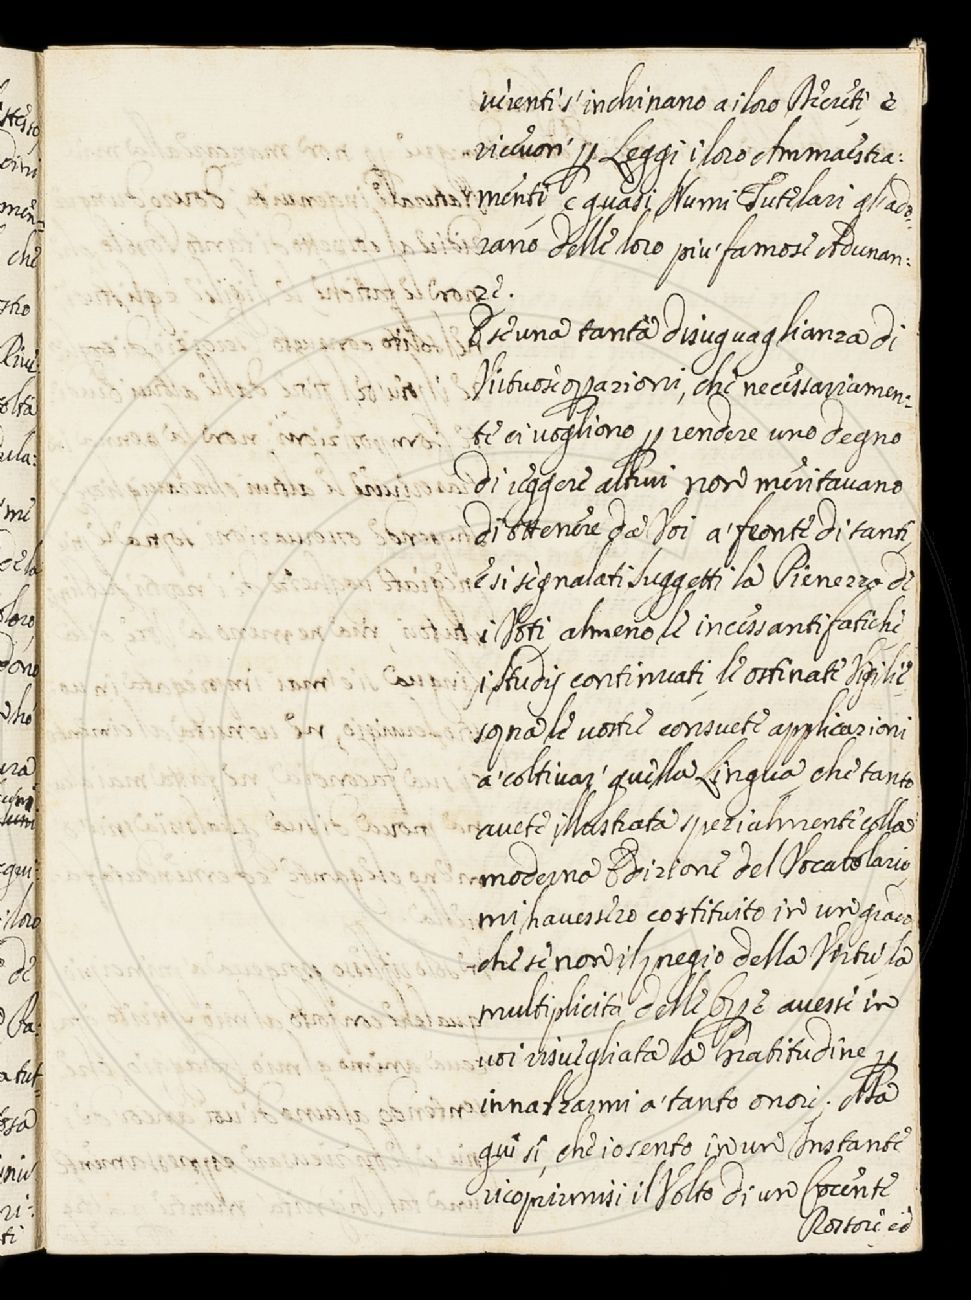 uerenti s'inchinano a i loro Decreti, e
riceuon' p Leggi i loro Ammaestra:
menti, e quasi Numi Tutelari gl'ado:
rano delle loro più famose Adunan:
ze.
E se una tanta disuguaglianza di
Virtuose oparazioni, che necessariamen:
te ci vogliono p rendere uno degno
di reggere altrui non meritauano
di ottenere da Voi a' fronte di tanti,
e si segnalati suggetti la Pienezza de
i Voti, almeno le incessanti fatiche
i studij continuati, le ostinate Vigilie
sopra le uostre consuete applicazioni
a' coltiuar' quella Lingua, che tanto
auete illustrata spezialmente colla
moderna Edizione del Vocabolario,
mi hauessero costituito in un grado
che se non il pregio della Virtù, la
multiplicità delle Opre auesse in
uoi risuegliata la Gratitudine p
innalzarmi a' tanto onore. Ma
qui sì, che io sento in un Instante
ricoprirmisi il Volto di un Cocente
Rossore, ed